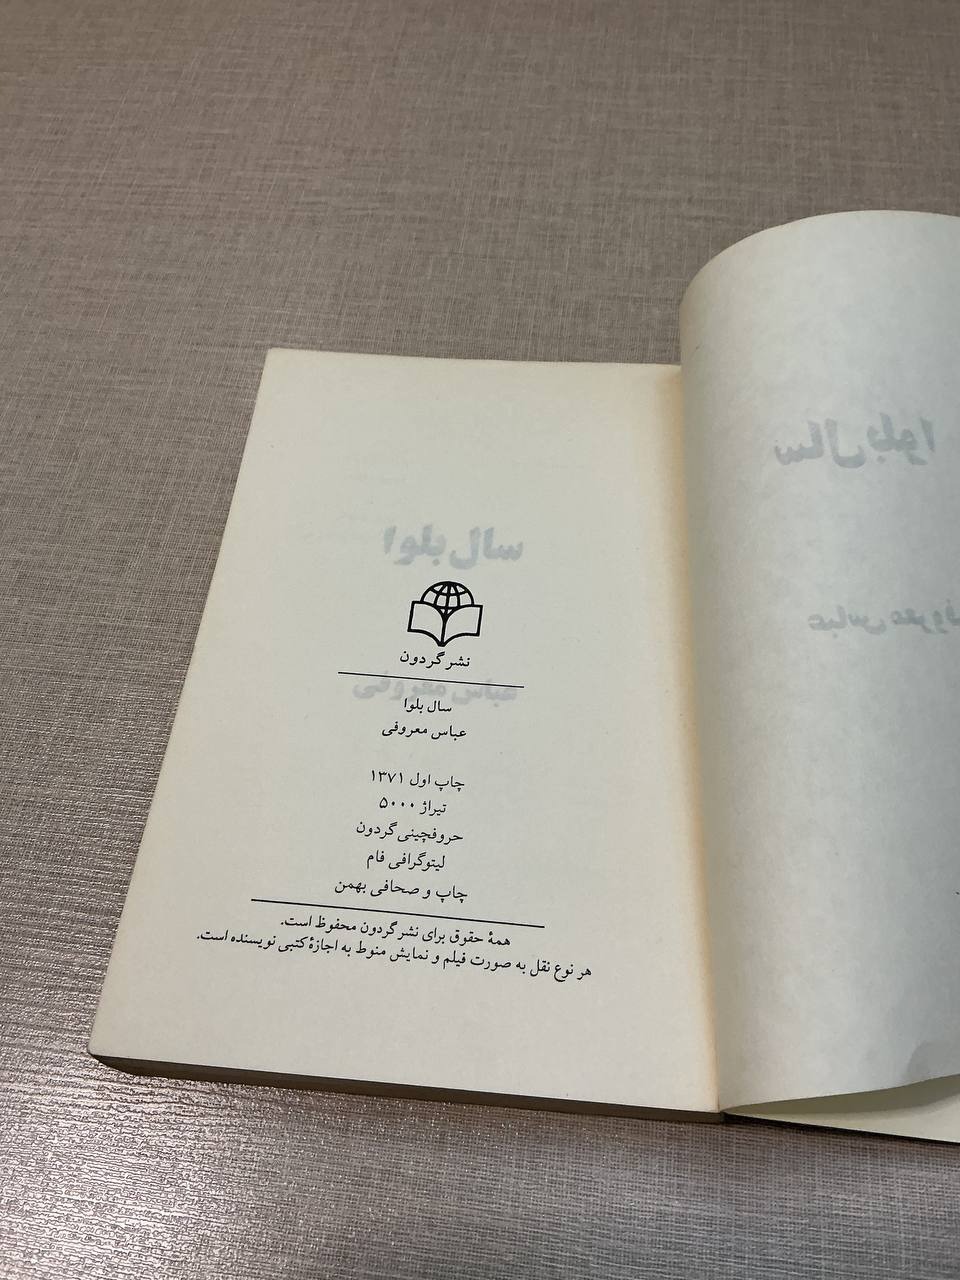 نشر گردون
سال بلوا
عباس معروفی
چاپ اول ۱۳۷۱
تیراژ ۵۰۰۰
حروفچینی گردون
لیتوگرافی فام
چاپ و صحافی بهمن
همهٔ حقوق برای نشر گردون محفوظ است.
هر نوع نقل به صورت فیلم و نمایش منوط به اجازهٔ کتبی نویسنده است.
سال بلوا